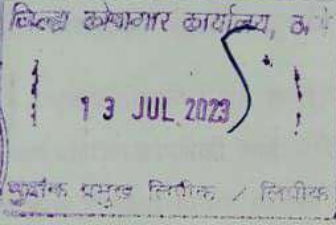 जिल्हा कोषागार कार्यालय, ठ
13 JUL 2023
प्रमुख लिपीक / लिपीक